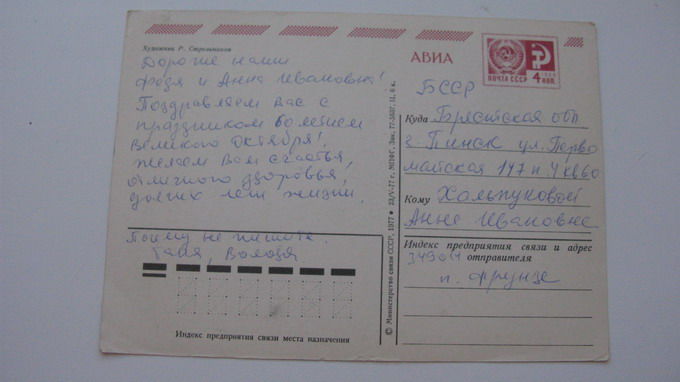 Художник Р. Стрельников
Дорогие наши
Федя и Анна Ивановна!
Поздравляем Вас с
праздником 60 летием
Великого Октября!
желаем Вам счастья,
отличного здоровья,
долгих лет жизни.
Почему не пишете.
Таня, Володя
Индекс предприятия связи места назначения
© Министерство связи СССР, 1977 ● 23/V-77 г.
АВИА
ПОЧТА СССР
4 КОП.
БССР
Куда Брестская обл
г Пинск ул. Перво
майская 147
Кому
Анне Ивановне
Индекс предприятия связи и адрес
отправителя
г. Фрунзе